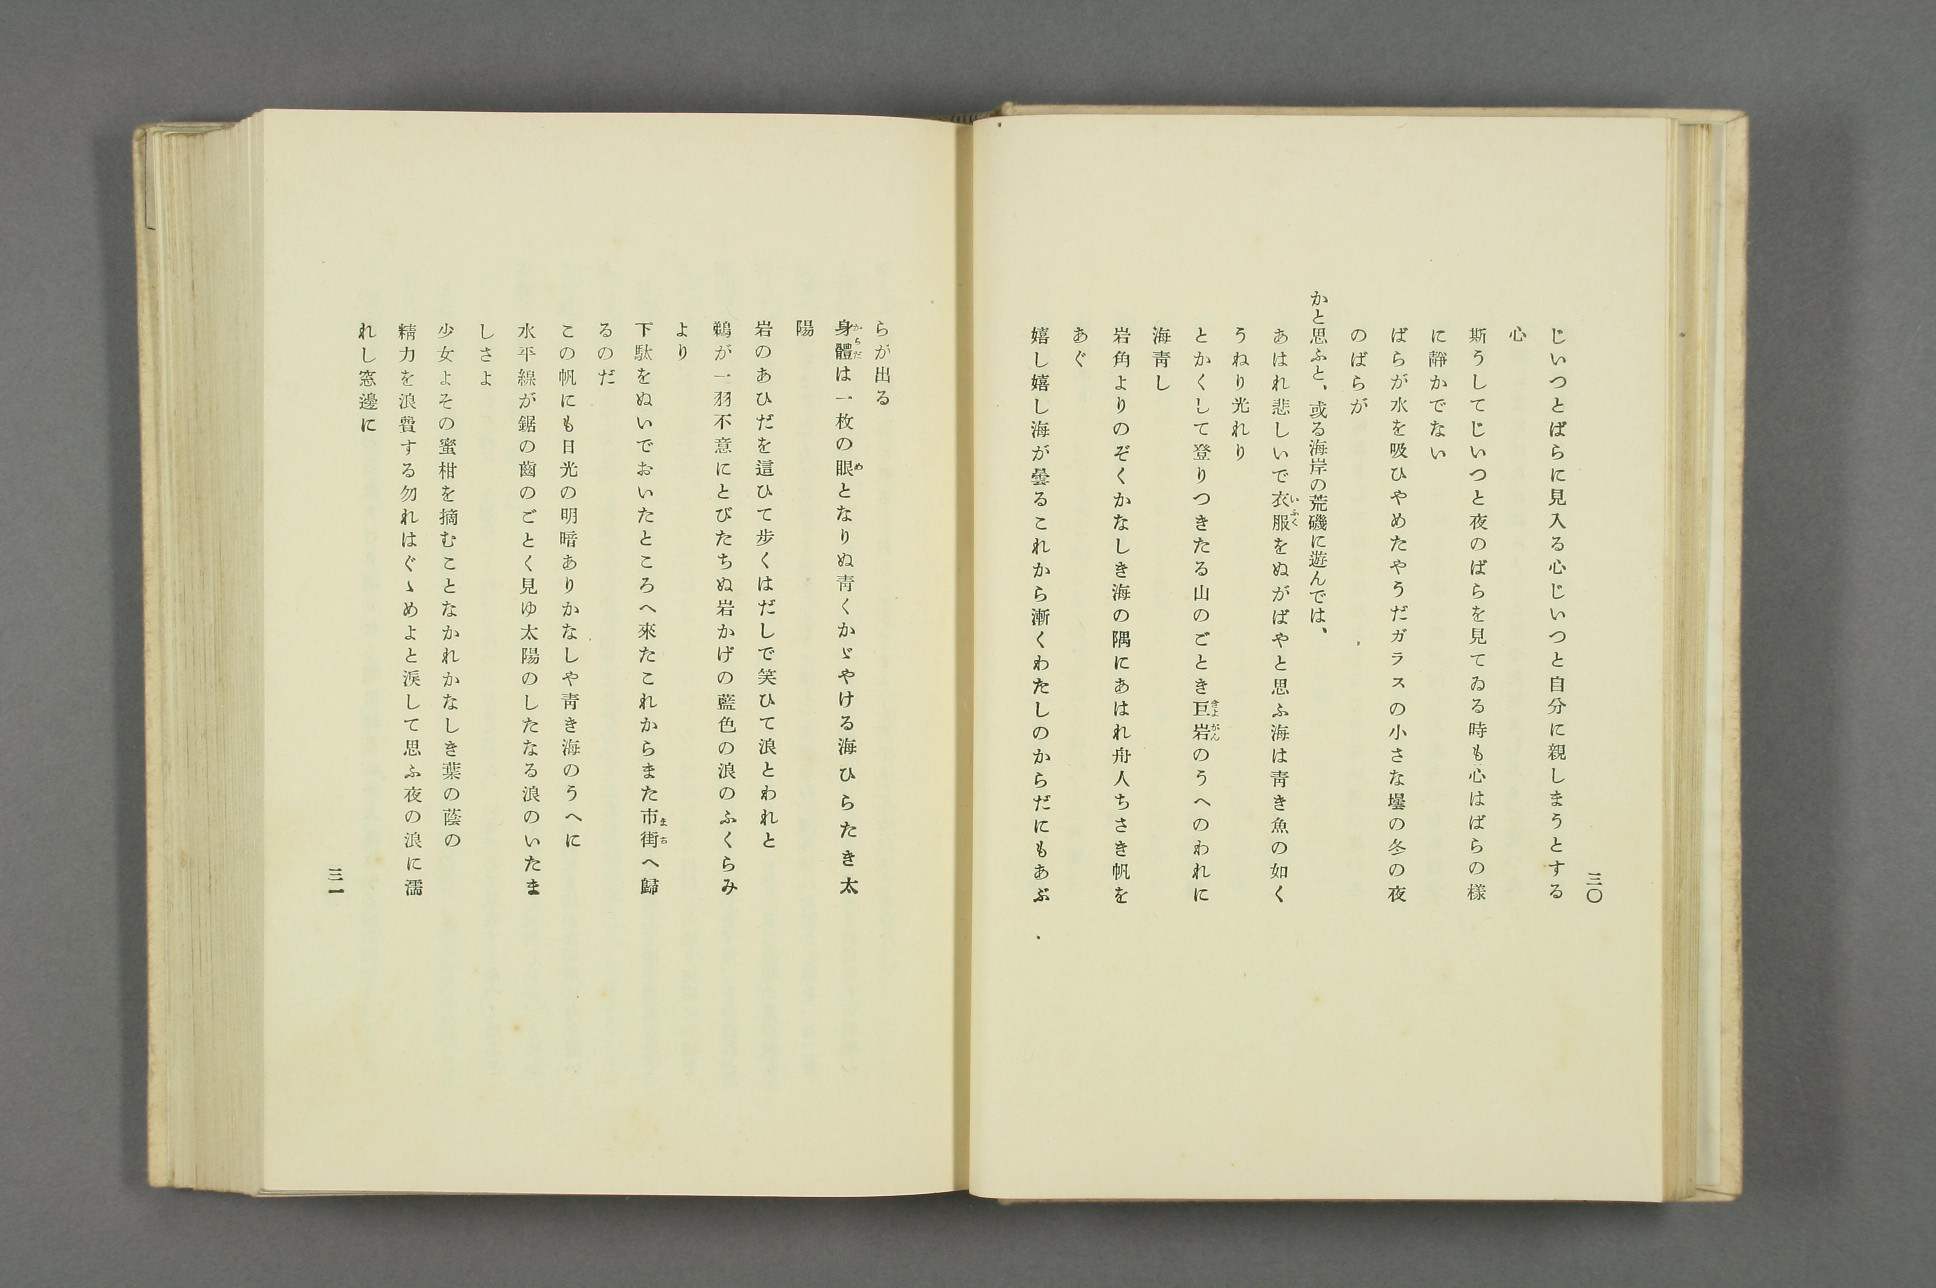 三〇
じいつとばらに見入る心じいつと自分に親しまうとする
心
斯うしてじいつと夜のばらを見てゐる時も心はばらの樣
に靜かでない
ばらが水を吸ひやめたやうだガラスの小さな壜の冬の夜
のばらが
かと思ふと、或る海岸の荒磯に遊んでは、
あはれ悲しいで衣服をぬがばやと思ふ海は靑き魚の如く
いふく
うねり光れり
とかくして登りつきたる山のごとき巨岩のうへのわれに
きよがん
海靑し
岩角よりのぞくかなしき海の隅にあはれ舟人ちさき帆を
あぐ
嬉し嬉し海が曇るこれから漸くわたしのからだにもあぶ
らが出る
身體は一枚の眼となりぬ靑くかゞやける海ひらたき太
からだ
め
陽
岩のあひだを這ひて步くはだしで笑ひて浪とわれと
鵜が一羽不意にとびたちぬ岩かげの藍色の浪のふくらみ
より
下駄をぬいでおいたところへ來たこれからまた市街へ歸
まち
るのだ
この帆にも日光の明暗ありかなしや靑き海のうへに
水平線が鋸の齒のごとく見ゆ太陽のしたなる浪のいたま
しさよ
少女よその蜜柑を摘むことなかれかなしき葉の蔭の
精力を浪費する勿れはぐゝめよと淚して思ふ夜の浪に濡
れし窓邊に
三一